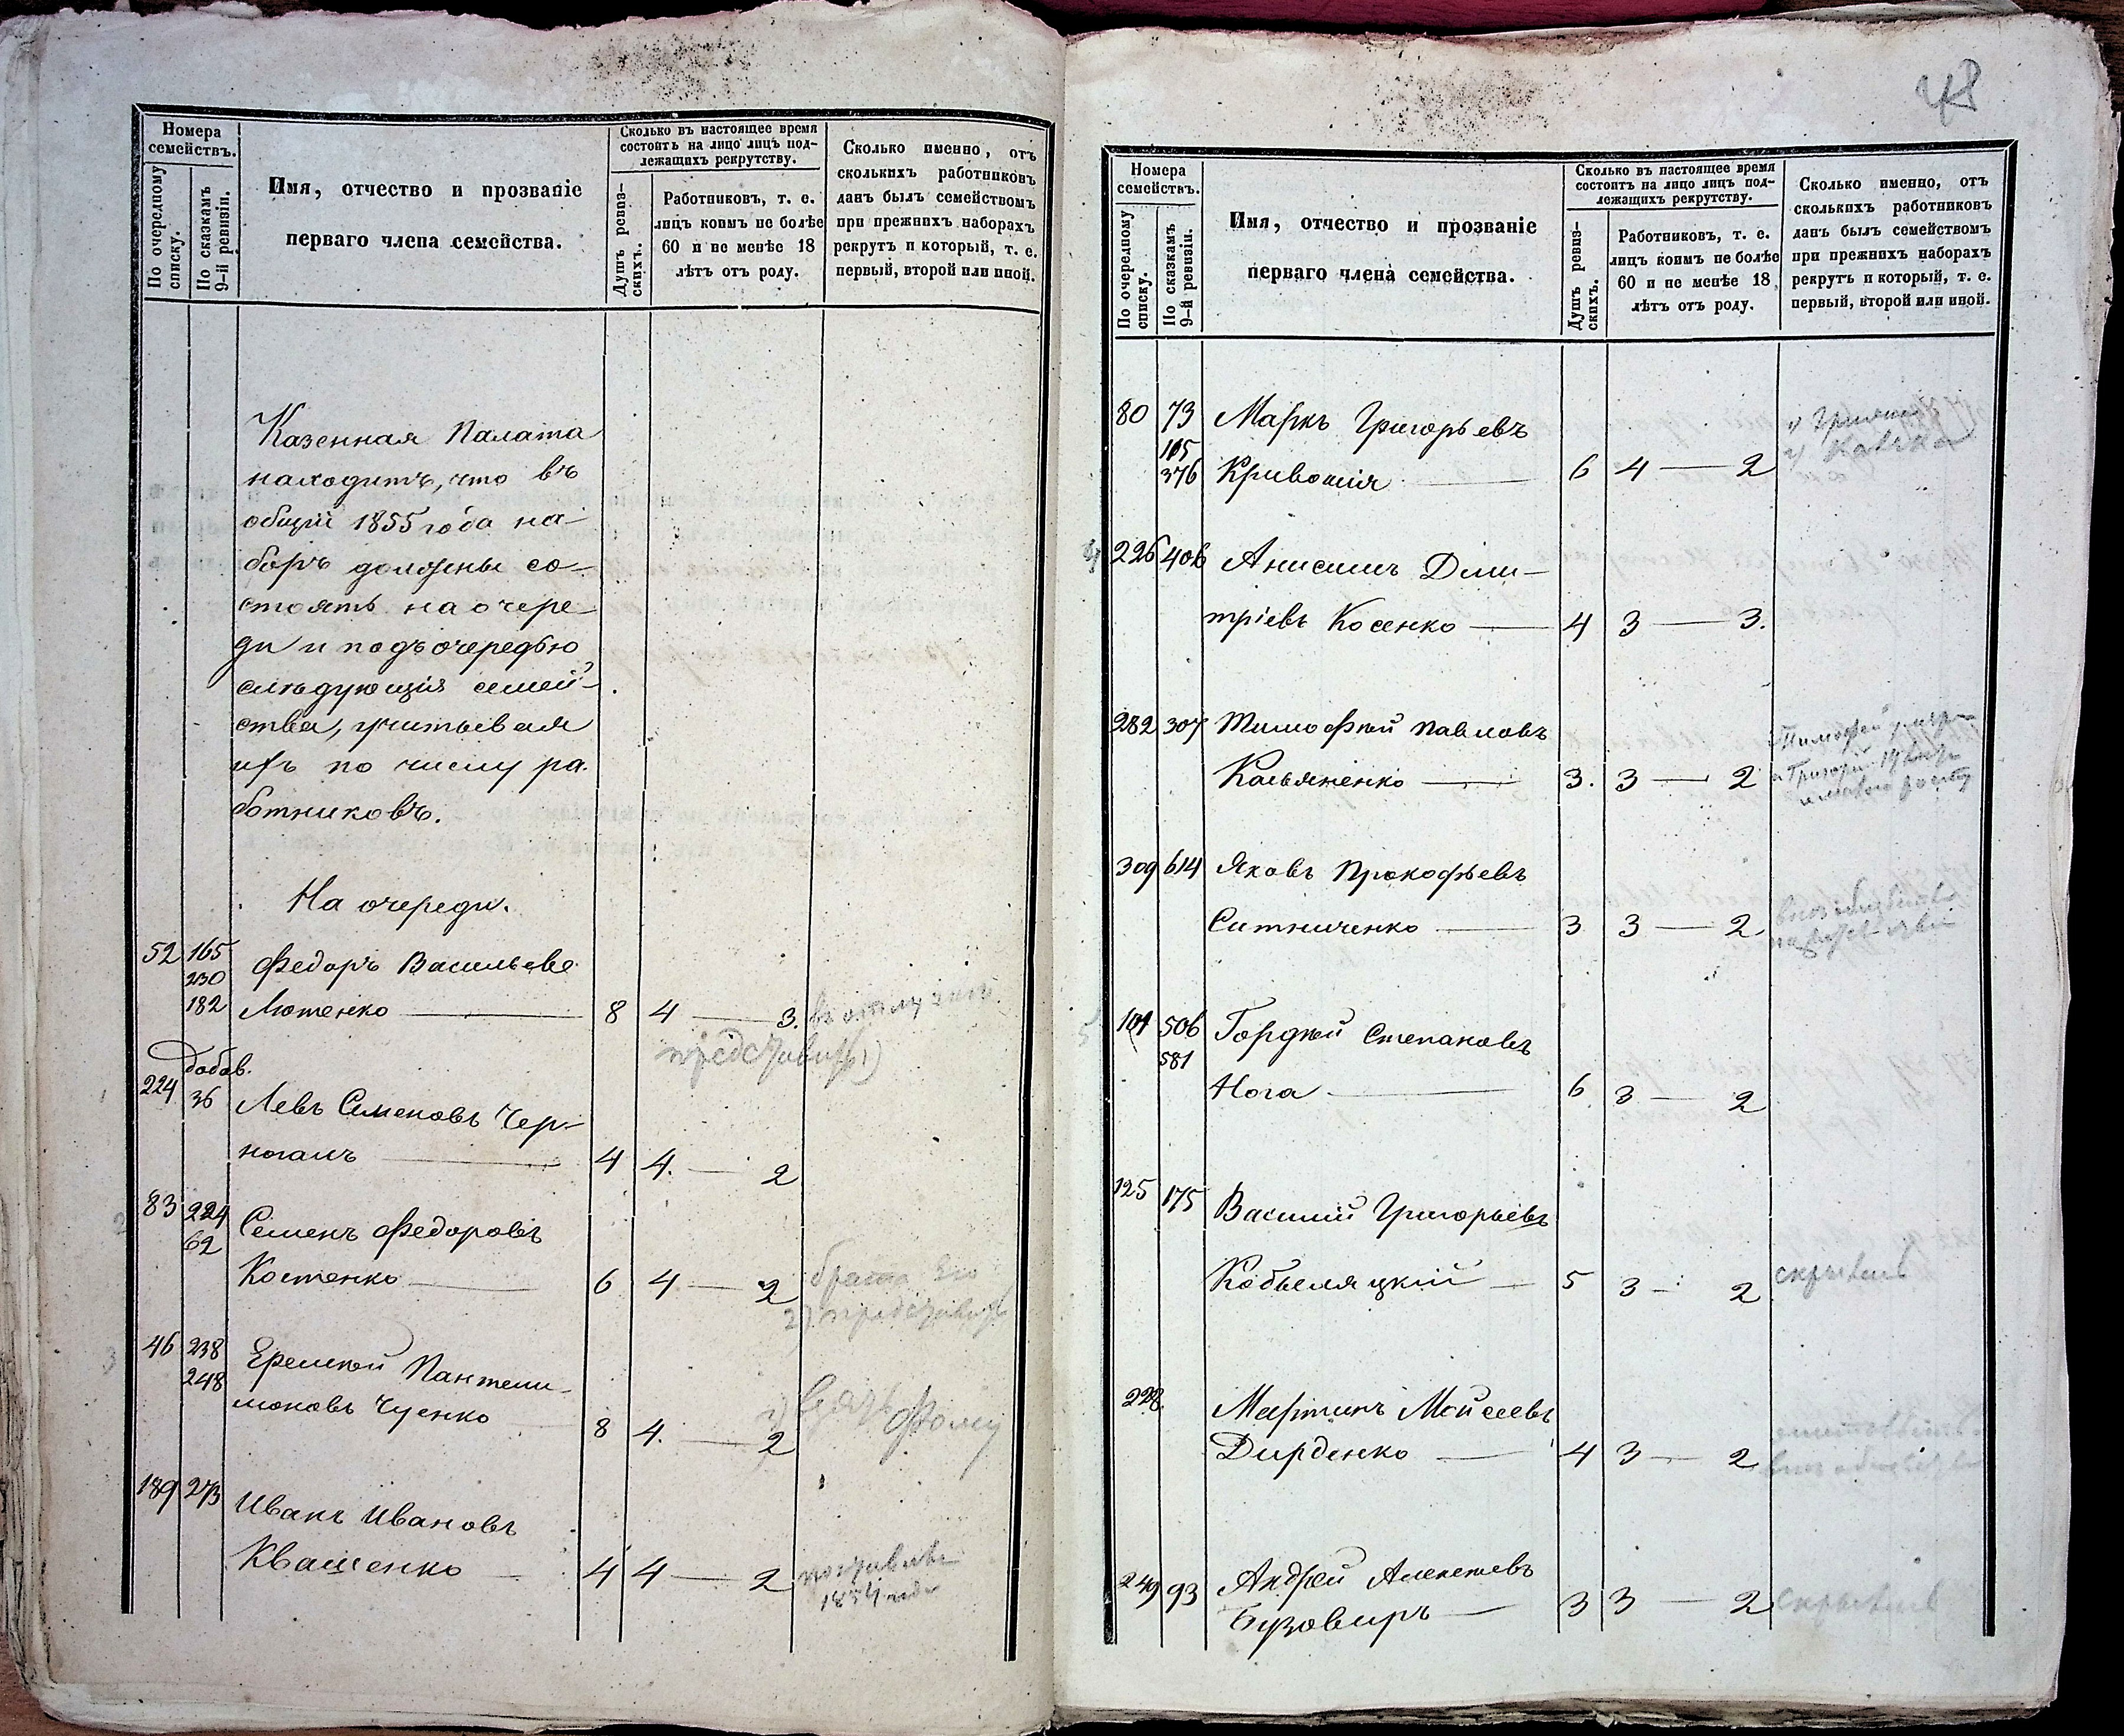 Номера
семействъ.
По очередному
списку.
По сказкамъ
9-й ревизіи.
Имя, отчество и прозваніе
перваго члена семейства.
Сколько въ настоящее время
состоитъ на лицо лицъ под-
лежащихъ рекрутству.
Душъ ревиз-
скихъ.
Работниковъ, т. е.
лицъ коимъ не болѣе
60 и не менѣе 18
лѣтъ отъ роду.
Сколько именно, отъ
сколькихъ работниковъ
данъ былъ семействомъ
при прежнихъ наборахъ
рекрутъ и который, т. е.
первый, второй или иной.
Казенная Палата
находитъ, что въ
общій 1855 года на-
боръ должны со-
стоять на очере-
ди и подъ очередью
слѣдующія семей-
ства, учитывая
ихъ по числу ра-
ботниковъ.
На очереди.
52 165 Федоръ Васильевъ
230
182 Лютенко 8 4 — 3. въ отлучкѣ
представить 1)
добав.
224 36 Левъ Семеновъ Чер-
ногалъ 4 4. — 2
83 224 Семенъ Федоровъ
62
Костенко 6 4 — 2 брата его
2) представить
46 238 Еремѣй Пантели-
248
моновъ Чуенко 8 4. — 2
189 273 Иванъ Ивановъ
Кващенко 4 4 — 2
1854 года
48
Номера
семействъ.
По очередному
списку.
По сказкамъ
9-й ревизіи.
Имя, отчество и прозваніе
перваго члена семейства.
Сколько въ настоящее время
состоитъ на лицо лицъ под-
лежащихъ рекрутству.
Душъ ревиз-
скихъ.
Работниковъ, т. е.
лицъ коимъ не болѣе
60 и не менѣе 18
лѣтъ отъ роду.
Сколько именно, отъ
сколькихъ работниковъ
данъ былъ семействомъ
при прежнихъ наборахъ
рекрутъ и который, т. е.
первый, второй или иной.
80 73 Маркъ Григорьевъ
165
376 Кривошія 6 4 — 2
226 406 Анисимъ Дми-
тріевъ Косенко 4 3 — 3.
282 307 Тимофѣй Павловъ
Касьяненко 3. 3 — 2
309 614 Яковъ Прокофьевъ
Ситниченко 3 3 — 2
101 506 Гордѣй Степановъ
581
Нога 6 3 — 2
125 175 Василій Григорьевъ
Кобеляцкій 5 3 — 2
228 Мартинъ Мойсеевъ
Дирденко 4 3 — 2
249 93 Андрей Алексѣевъ
Бузовиръ 3 3 — 2